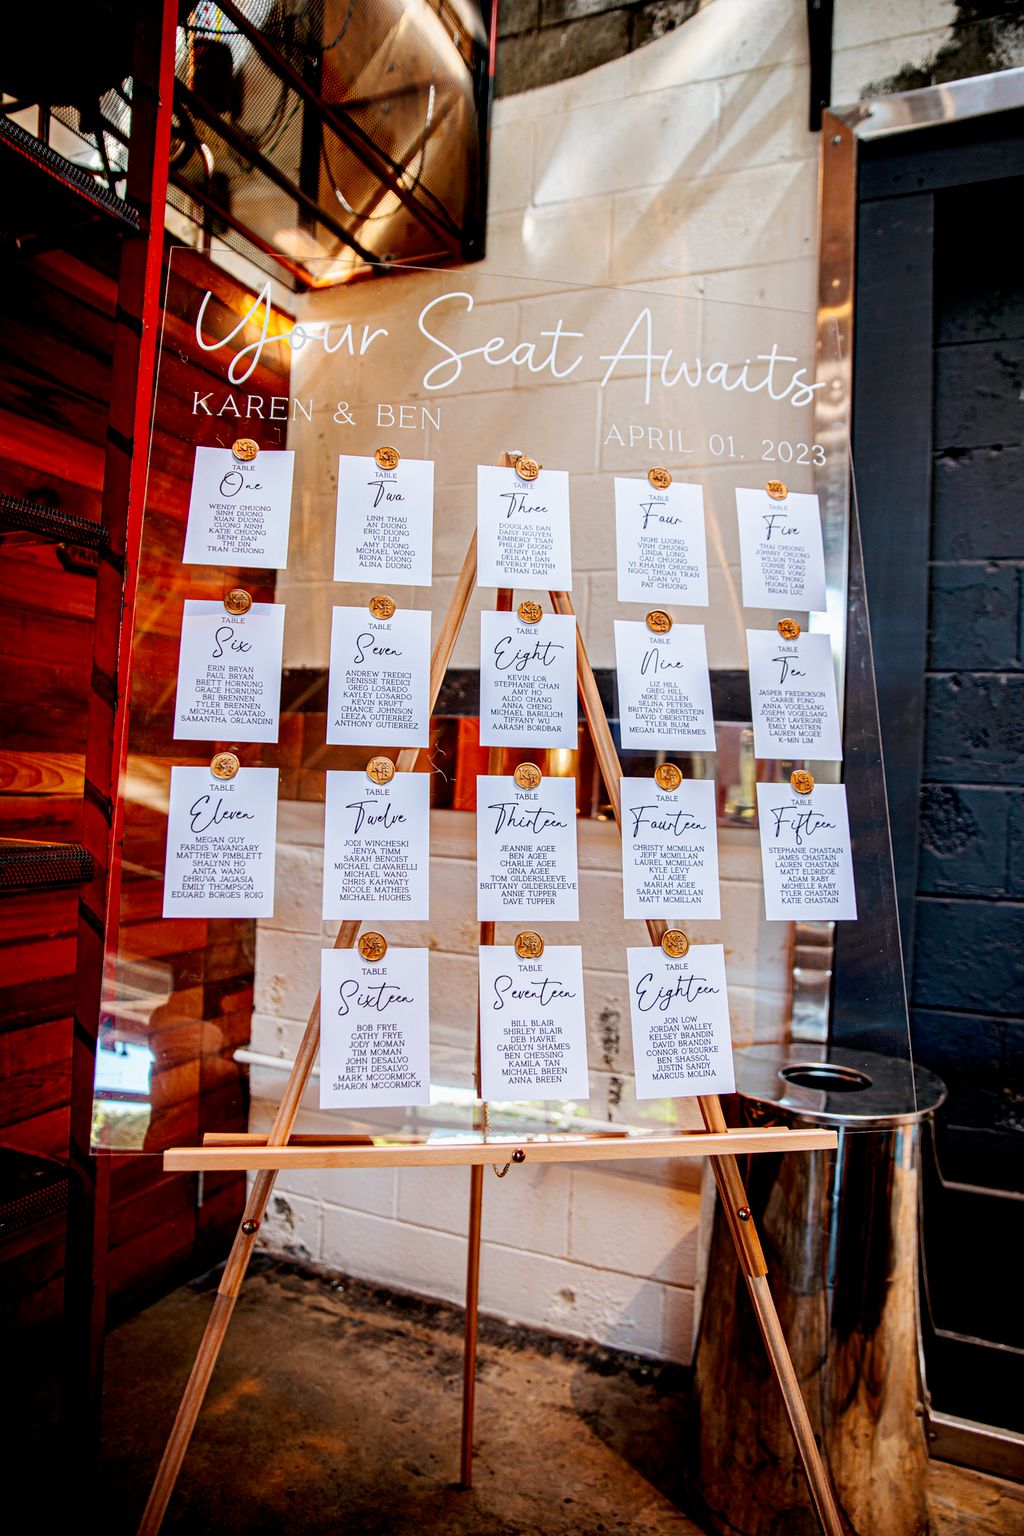 Your Seat Awaits
KAREN & BEN
APRIL 01. 2023
TABLE
One
WENDY CHUONG
SINH DUONG
XUAN DUONG
CUONG NINH
KATIE CHUONG
SENH DAN
THI DIN
TRAN CHUONG
TABLE
Two
LINH THAU
AN DUONG
ERIC DUONG
VUI LIU
AMY DUONG
MICHAEL WONG
RIONA DUONG
ALINA DUONG
TABLE
Three
DOUGLAS DAN
DAISY NGUYEN
KIMBERLY TSAN
PHILLIP DUONG
KENNY DAN
DELILAH DAN
BEVERLY HUYNH
ETHAN DAN
TABLE
Four
NGHI LUONG
VINH CHUONG
LINDA LONG
CAU CHUONG
VI KHANH CHUONG
NGOC THUAN TRAN
LOAN VU
PAT CHUONG
TABLE
Five
THAI CHUONG
JOHNNY CHUONG
WILSON TSAN
CONNIE VONG
DUONG VONG
UNG THONG
HUONG LAM
BRIAN LUC
TABLE
Six
ERIN BRYAN
PAUL BRYAN
BRETT HORNUNG
GRACE HORNUNG
BRI BRENNEN
TYLER BRENNEN
MICHAEL CAVATAIO
SAMANTHA ORLANDINI
TABLE
Seven
ANDREW TREDICI
DENISSE TREDICI
GREG LOSARDO
KAYLEY LOSARDO
KEVIN KRUFT
CHANCE JOHNSON
LEEZA GUTIERREZ
ANTHONY GUTIERREZ
TABLE
Eight
KEVIN LOR
STEPHANIE CHAN
AMY HO
ALDO CHANG
ANNA CHENG
MICHAEL BARULICH
TIFFANY WU
AARASH BORDBAR
TABLE
Nine
LIZ HILL
GREG HILL
MIKE CULLEN
SELINA PETERS
BRITTANY OBERSTEIN
DAVID OBERSTEIN
TYLER BLUM
MEGAN KLIETHERMES
TABLE
Ten
JASPER FREDICKSON
CARRIE FONG
ANNA VOGELSANG
JOSEPH VOGELSANG
RICKY LAVERONE
EMILY MASTREN
LAUREN MCGEE
K-MIN LIM
TABLE
Eleven
MEGAN GUY
FARDIS TAVANGARY
MATTHEW PIMBLETT
SHALYNN HO
ANITA WANG
DHRUVA JAGASIA
EMILY THOMPSON
EDUARD BORGES ROIG
TABLE
Twelve
JODI WINCHESKI
JENYA TIMM
SARAH BENOIST
MICHAEL CIAVARELLI
MICHAEL WANG
CHRIS KAHWATY
NICOLE MATHEIS
MICHAEL HUGHES
TABLE
Thirteen
JEANNIE AGEE
BEN AGEE
CHARLIE AGEE
GINA AGEE
TOM GILDERSLEEVE
BRITTANY GILDERSLEEVE
ANNIE TUPPER
DAVE TUPPER
TABLE
Fourteen
CHRISTY MCMILLAN
JEFF MCMILLAN
LAUREL MCMILLAN
KYLE LEVY
ALI AGEE
MARIAH AGEE
SARAH MCMILLAN
MATT MCMILLAN
TABLE
Fifteen
STEPHANIE CHASTAIN
JAMES CHASTAIN
LAUREN CHASTAIN
MATT ELDRIDGE
ADAM RABY
MICHELLE RABY
TYLER CHASTAIN
KATIE CHASTAIN
TABLE
Sixteen
BOB FRYE
CATHY FRYE
JODY MOMAN
TIM MOMAN
JOHN DESALVO
BETH DESALVO
MARK MCCORMICK
SHARON MCCORMICK
TABLE
Seventeen
BILL BLAIR
SHIRLEY BLAIR
DEB HAVRE
CAROLYN SHAMES
BEN CHESSING
KAMILA TAN
MICHAEL BREEN
ANNA BREEN
TABLE
Eighteen
JON LOW
JORDAN WALLEY
KELSEY BRANDIN
DAVID BRANDIN
CONNOR O'ROURKE
BEN SHASSOL
JUSTIN SANDY
MARCUS MOLINA